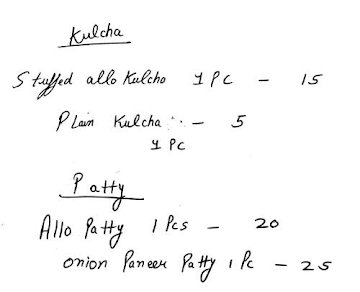 Kulcha
Stuffed allo Kulcho 1 PC - 15
Plain Kulcha - 5
1 PC
Patty
Allo Patty 1 Pcs - 20
onion Paneer Patty 1 Pc - 25